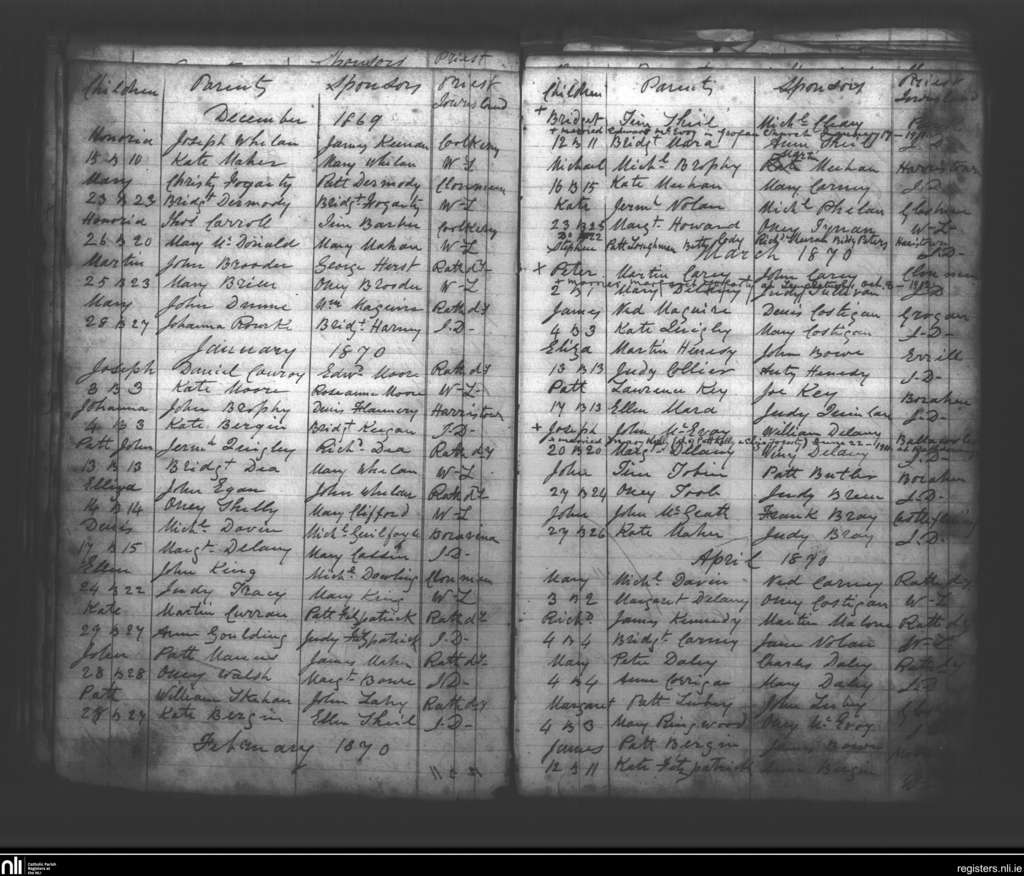 Sponsors Priest
Children Parents Sponsors Priest
Townsland
December 1869
Honoria Joseph Whelan James Keenan Coolkerry
15 B 10 Kate Maher Mary Whelan W-L
Mary Christy Fogarty Patt Dermody Clonmeen
23 B 23 Bridgt Dermody Bridgt Fogarty W-L
Honoria Thos Carroll Jim Barber Coolkerry
26 B 20 Mary McDonald Mary Mahan W-L
Martin John Brooder George Hurst Rath dy
25 B 23 Mary Brien Oney Brooder W-L
Mary John Dunne Wm Maguire Rath dy
28 B 27 Johanna Rourke Bridgt Harney J-D-
January 1870
Joseph Daniel Conroy Edwd Moore Rath dy
3 B 3 Kate Moore Roseanna Moore W-L-
Johanna John Brophy Denis Flannery Harristown
4 B 3 Kate Bergin Bridgt Keegan J-D-
Patt John Jermh Quigley Richd Dea Rath dy
13 B 13 Bridgt Dea Mary Whelan W-L
Elliza John Egan John Whelan Rath dy
14 B 14 Oney Shelly Mary Clifford W-L
Denis Michl Davin Michl Guilfoyle
17 B 15 Margt Delany Mary Cassin J-D-
Ellen John King Michl Dowling Clonmeen
24 B 22 Judy Tracy Mary King W-L
Kate Martin Curran Patt Fitzpatrick Rath dy
29 B 27 Anne Goulding Judy Fitzpatrick J-D-
John Patt James Rath dy
28 B 28 Oney Walsh Margt Bowe J-D-
Patt William John Lahy Rath dy
28 B 27 Kate Bergin Ellen Sheil J-D-
February 1870
Children Parents Sponsors Priest
Townsland
+ Bridget Tim Sheil Michl Cleary
+ married Edward McEvoy in Church
12 B 11 Bridgt Mara Anne Sheil J-D-
Michael Michl Brophy Kate Meehan Harristown
16 B 15 Kate Meehan Mary Carney J-D-
Kate Jermh Nolan Michl Phelan
23 B 25 Margt Howard Oney Tynan W-L-
Stephen Patt Loughman Betty Cody
March 1870 J-D-
+ Peter Martin Carey John Carey Clonmeen
+ married
2 B 1 Judy Sullivan J-D
James Ned Maguire Denis Costigan Grogan
4 B 3 Kate Quigley Mary Costigan J-D-
Eliza Martin Henesy John Bowe Errill
13 B 13 Judy Collier Henesy J-D-
Patt Lawrence Key Joe Key Borahen
17 B 13 Ellen Mara Judy Quinlan J-D-
+ Joseph John McEvoy William Delany
20 B 20 Margt Delany Delany J-D-
John Tim Tobin Patt Butler Borahen
27 B 24 Oney Toole Judy Breen J-D-
John John McGratt Frank Bray Castlefleming
27 B 26 Kate Maher Judy Bray J.D-
April 1870
Mary Michl Davin Ned Carney Rath dy
3 B 2 Margaret Delany Oney Costigan W-L
Richd James Kennedy Martin Malone Rath dy
4 B 4 Bridgt Carney Jane Nolan W-L
Mary Peter Daley Charles Daley Rath dy
4 B 4 Anne Corrigan Mary Daley J.D
Margaret Patt John
4 B 3 Mary Ringwood Oney McEvoy
James Patt Bergin James Bowe
12 B 11 Kate Fitzpatrick Bergin
nli Catholic Parish
Registers at
the NLI
registers.nli.ie